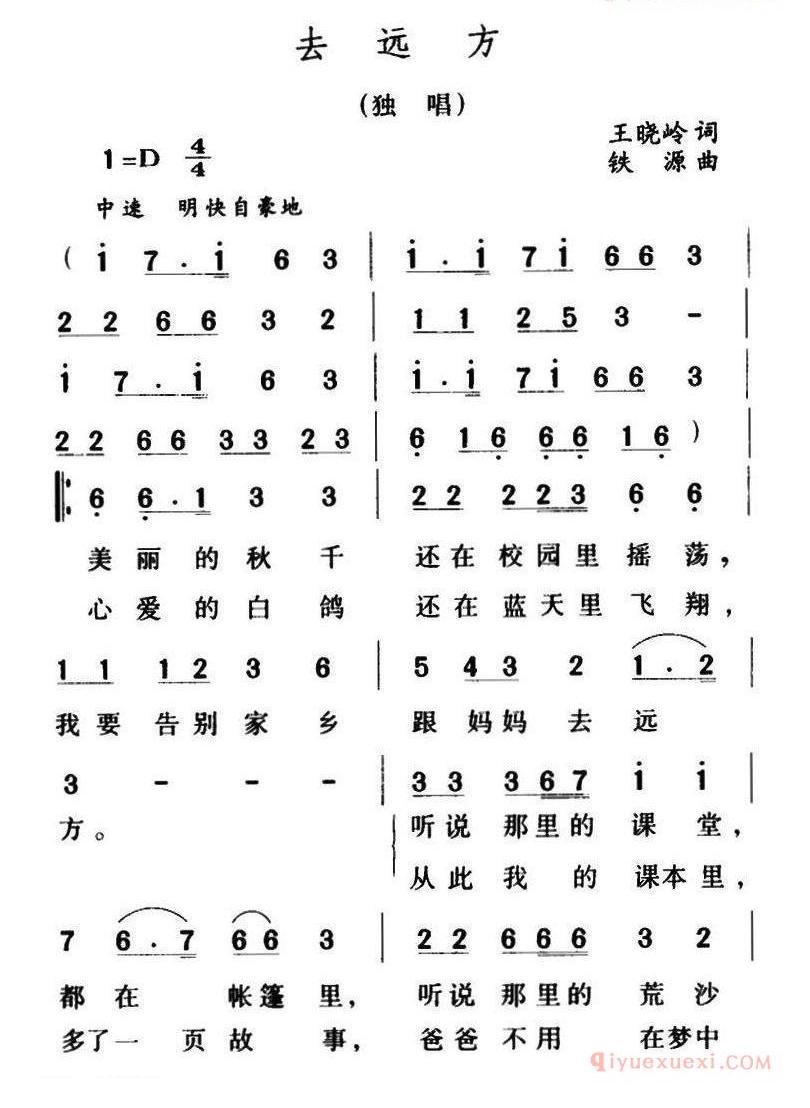 去远方
(独唱)
王晓岭词
1=D 4/4
铁源曲
中速 明快自豪地
( i 7 . i 6 3 | i . i 7 i 6 6 3 |
2 2 6 6 3 2 | 1 1 2 5 3 - |
i 7 . i 6 3 | i . i 7 i 6 6 3 |
2 2 6 6 3 3 2 3 | 6 1 6 6 6 1 6 ) |
|: 6 6 . 1 3 3 | 2 2 2 2 3 6 6 |
美丽的秋千 还在校园里摇荡,
心爱的白鸽 还在蓝天里飞翔,
1 1 1 2 3 6 | 5 4 3 2 1 . 2 |
我要告别家乡 跟妈妈去远
3 - - - | 3 3 3 6 7 i i |
方。 听说那里的课堂,
从此我的课本里,
7 6 . 7 6 6 3 | 2 2 6 6 6 3 2 |
都在帐篷里, 听说那里的荒沙
多了一页故事, 爸爸不用在梦中
qiyuexuexi.com